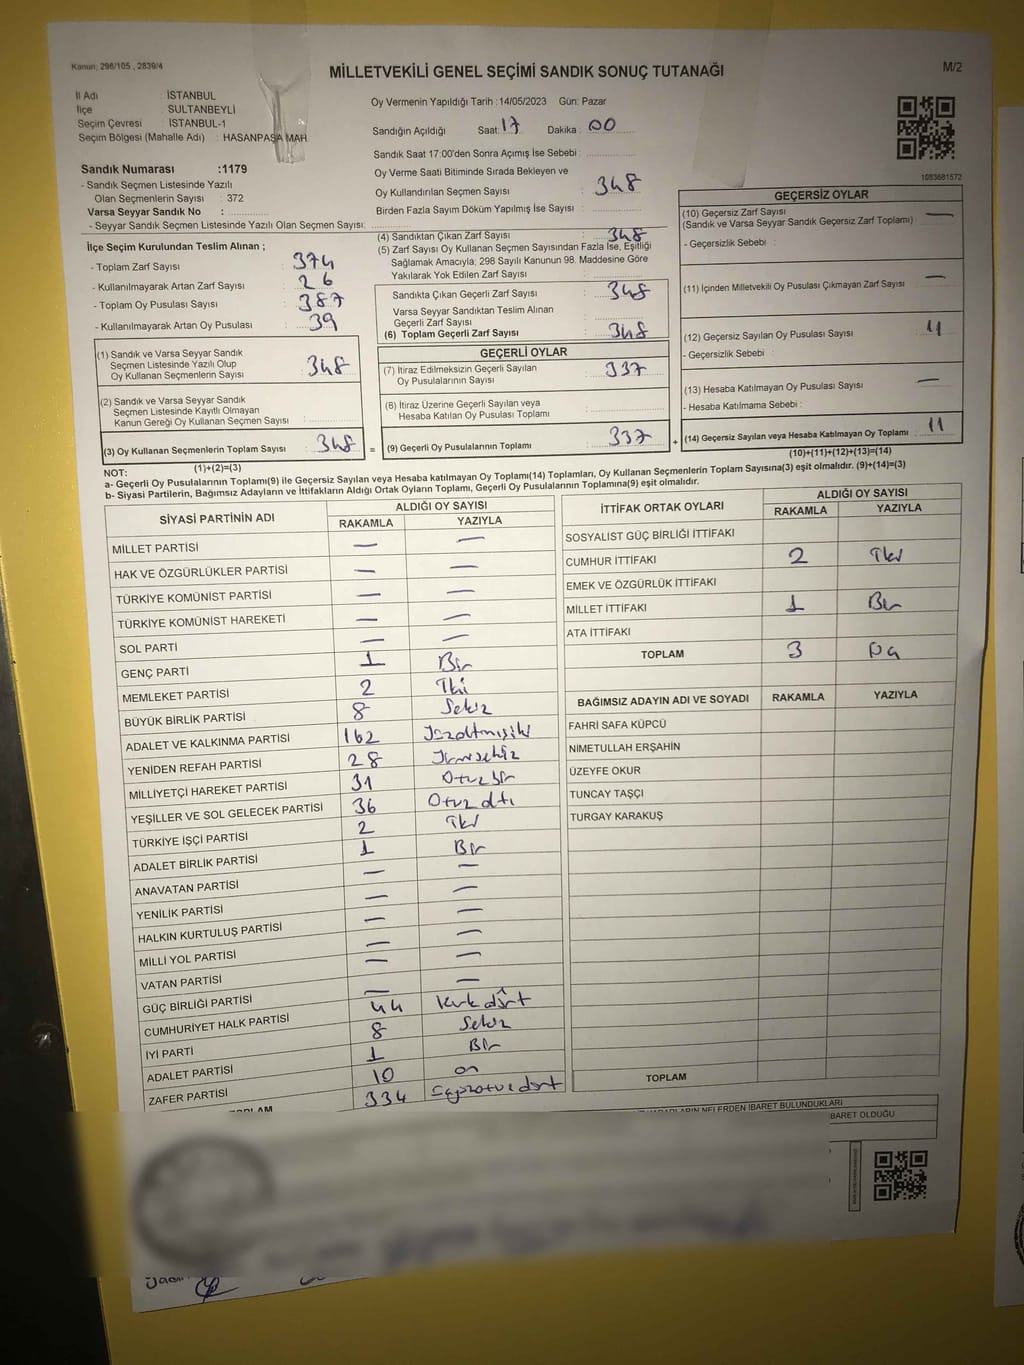 Kanun; 298/105 , 2839/4
MİLLETVEKİLİ GENEL SEÇİMİ SANDIK SONUÇ TUTANAĞI
M/2
İl Adı : İSTANBUL
İlçe : SULTANBEYLİ
Seçim Çevresi : İSTANBUL-1
Seçim Bölgesi (Mahalle Adı) : HASANPAŞA MAH.
Oy Vermenin Yapıldığı Tarih :14/05/2023 Gün: Pazar
Sandığın Açıldığı Saat: 17 Dakika : 00
Sandık Saat 17:00'den Sonra Açımış İse Sebebi :
Oy Verme Saati Bitiminde Sırada Bekleyen ve
Oy Kullandırılan Seçmen Sayısı : 348
Birden Fazla Sayım Döküm Yapılmış İse Sayısı :
1083681572
Sandık Numarası :1179
- Sandık Seçmen Listesinde Yazılı
Olan Seçmenlerin Sayısı : 372
Varsa Seyyar Sandık No :
- Seyyar Sandık Seçmen Listesinde Yazılı Olan Seçmen Sayısı:
İlçe Seçim Kurulundan Teslim Alınan ;
- Toplam Zarf Sayısı : 374
- Kullanılmayarak Artan Zarf Sayısı : 26
- Toplam Oy Pusulası Sayısı : 387
- Kullanılmayarak Artan Oy Pusulası : 39
(1) Sandık ve Varsa Seyyar Sandık
Seçmen Listesinde Yazılı Olup
Oy Kullanan Seçmenlerin Sayısı : 348
(2) Sandık ve Varsa Seyyar Sandık
Seçmen Listesinde Kayıtlı Olmayan
Kanun Gereği Oy Kullanan Seçmen Sayısı :
(3) Oy Kullanan Seçmenlerin Toplam Sayısı : 348 =
(1)+(2)=(3)
(4) Sandıktan Çıkan Zarf Sayısı : 348
(5) Zarf Sayısı Oy Kullanan Seçmen Sayısından Fazla İse, Eşitliği
Sağlamak Amacıyla; 298 Sayılı Kanunun 98. Maddesine Göre
Yakılarak Yok Edilen Zarf Sayısı :
Sandıkta Çıkan Geçerli Zarf Sayısı : 348
Varsa Seyyar Sandıktan Teslim Alınan
Geçerli Zarf Sayısı :
(6) Toplam Geçerli Zarf Sayısı : 348
GEÇERLİ OYLAR
(7) İtiraz Edilmeksizin Geçerli Sayılan
Oy Pusulalarının Sayısı : 337
(8) İtiraz Üzerine Geçerli Sayılan veya
Hesaba Katılan Oy Pusulası Toplamı :
(9) Geçerli Oy Pusulalarının Toplamı : 337 +
GEÇERSİZ OYLAR
(10) Geçersiz Zarf Sayısı : —
(Sandık ve Varsa Seyyar Sandık Geçersiz Zarf Toplamı)
- Geçersizlik Sebebi :
(11) İçinden Milletvekili Oy Pusulası Çıkmayan Zarf Sayısı : —
(12) Geçersiz Sayılan Oy Pusulası Sayısı : 11
- Geçersizlik Sebebi :
(13) Hesaba Katılmayan Oy Pusulası Sayısı : —
- Hesaba Katılmama Sebebi :
(14) Geçersiz Sayılan veya Hesaba Katılmayan Oy Toplamı : 11
(10)+(11)+(12)+(13)=(14)
NOT:
a- Geçerli Oy Pusulalarının Toplamı(9) ile Geçersiz Sayılan veya Hesaba katılmayan Oy Toplamı(14) Toplamları, Oy Kullanan Seçmenlerin Toplam Sayısına(3) eşit olmalıdır. (9)+(14)=(3)
b- Siyasi Partilerin, Bağımsız Adayların ve İttifakların Aldığı Ortak Oyların Toplamı, Geçerli Oy Pusulalarının Toplamına(9) eşit olmalıdır.
SİYASİ PARTİNİN ADI ALDIĞI OY SAYISI
RAKAMLA YAZIYLA
MİLLET PARTİSİ — —
HAK VE ÖZGÜRLÜKLER PARTİSİ — —
TÜRKİYE KOMÜNİST PARTİSİ — —
TÜRKİYE KOMÜNİST HAREKETİ — —
SOL PARTİ — —
GENÇ PARTİ 1 Bir
MEMLEKET PARTİSİ 2 İki
BÜYÜK BİRLİK PARTİSİ 8 Sekiz
ADALET VE KALKINMA PARTİSİ 162 Yüzaltmışiki
YENİDEN REFAH PARTİSİ 28 Yirmisekiz
MİLLİYETÇİ HAREKET PARTİSİ 31 Otuzbir
YEŞİLLER VE SOL GELECEK PARTİSİ 36 Otuzaltı
TÜRKİYE İŞÇİ PARTİSİ 2 İki
ADALET BİRLİK PARTİSİ 1 Bir
ANAVATAN PARTİSİ — —
YENİLİK PARTİSİ — —
HALKIN KURTULUŞ PARTİSİ — —
MİLLİ YOL PARTİSİ — —
VATAN PARTİSİ — —
GÜÇ BİRLİĞİ PARTİSİ — —
CUMHURİYET HALK PARTİSİ 44 Kırkdört
İYİ PARTİ 8 Sekiz
ADALET PARTİSİ 1 Bir
ZAFER PARTİSİ 10 on
334 üçyüzotuzdört
İTTİFAK ORTAK OYLARI ALDIĞI OY SAYISI
RAKAMLA YAZIYLA
SOSYALİST GÜÇ BİRLİĞİ İTTİFAKI
CUMHUR İTTİFAKI 2 İki
EMEK VE ÖZGÜRLÜK İTTİFAKI
MİLLET İTTİFAKI 1 Bir
ATA İTTİFAKI
TOPLAM 3
BAĞIMSIZ ADAYIN ADI VE SOYADI RAKAMLA YAZIYLA
FAHRİ SAFA KÜPCÜ
NİMETULLAH ERŞAHİN
ÜZEYFE OKUR
TUNCAY TAŞÇI
TURGAY KARAKUŞ
TOPLAM
NELERDEN İBARET BULUNDUKLARI
İBARET OLDUĞU